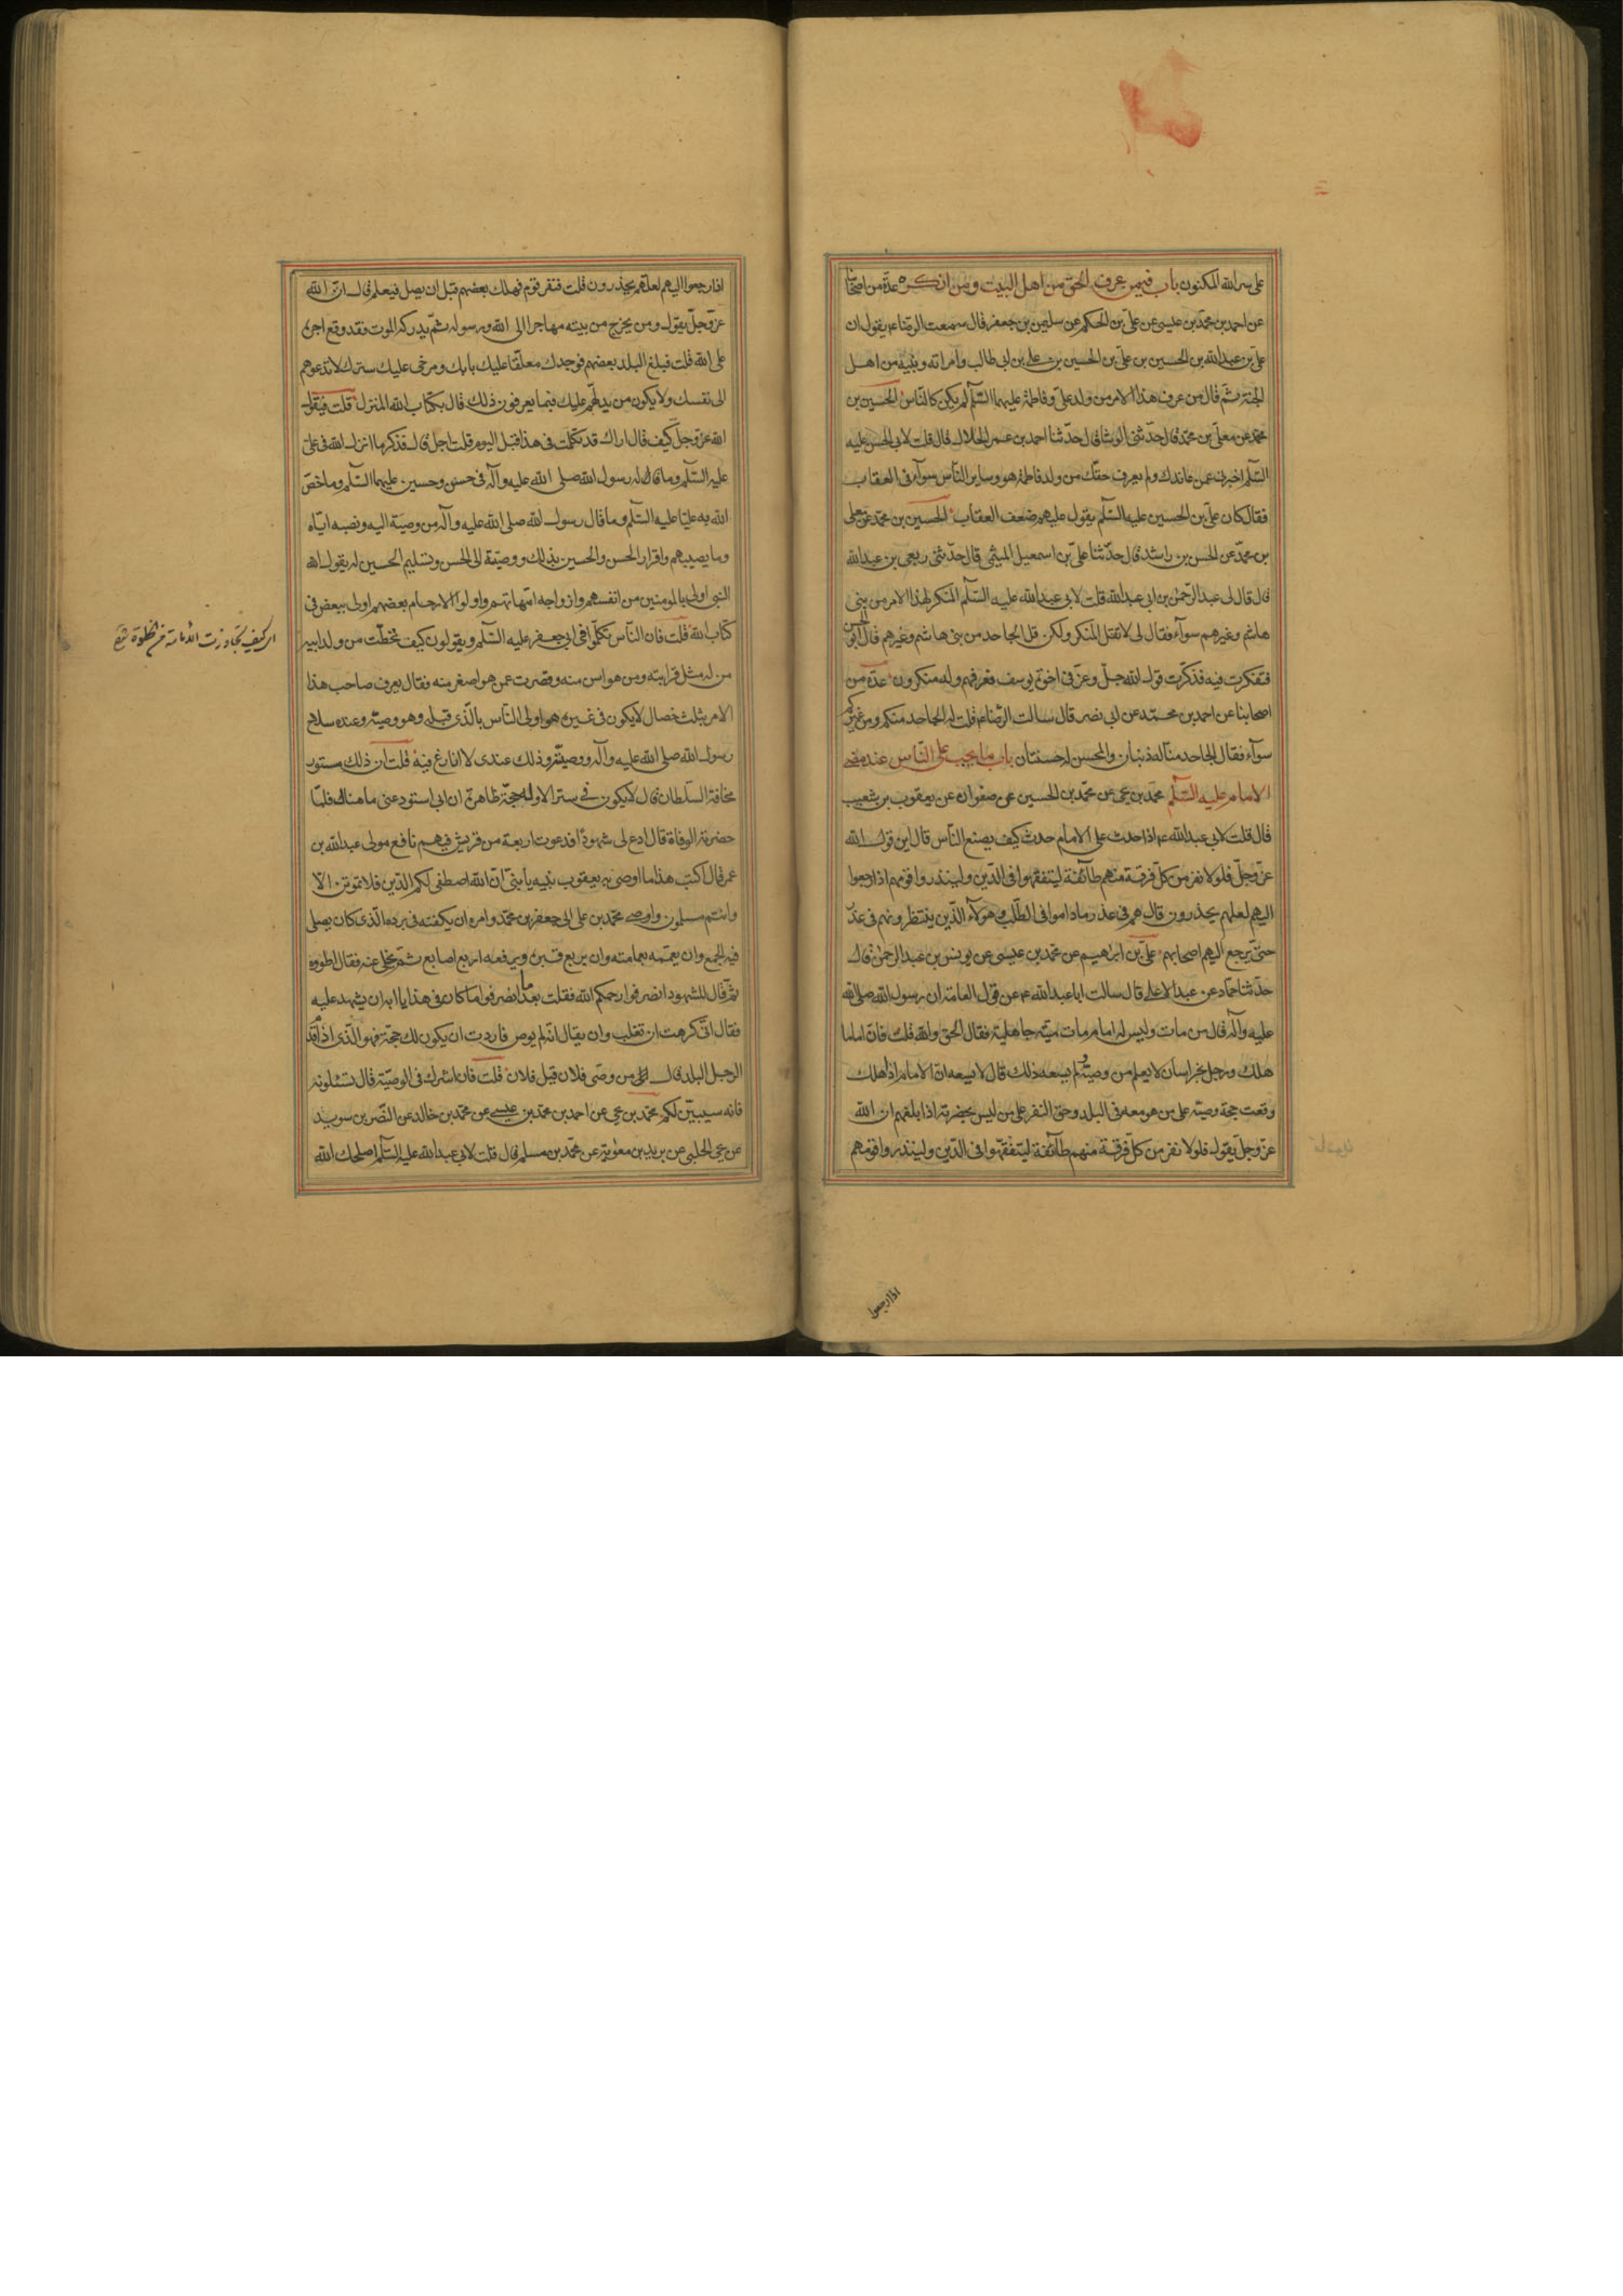 على سر الله المكنون باب فيمن عرف الحق من اهل البيت ومن انكره عدة من اصحابنا
عن احمد بن محمد بن عيسى عن على بن الحكم عن سليمن بن جعفر قال سمعت الرضا عم يقول ان
على بن عبد الله بن الحسين بن على بن الحسين بن على بن ابى طالب وامراته وبنيه من اهل
الجنة ثم قال من عرف هذا الامر من ولد على وفاطمة عليهما السلم لم يكن كالناس الحسين بن
محمد عن معلى بن محمد قال حدثنى الوشا قال حدثنا احمد بن عمر الحلال قال قلت لابى الحسن عليه
السلم اخبرنى عمن عاندك ولم يعرف حقك من ولد فاطمة هو وساير الناس سوآء فى العقاب
فقال كان على بن الحسين عليه السلم يقول عليهم ضعف العقاب الحسين بن محمد عن معلى
بن محمد عن الحسن بن راشد قال حدثنا على بن اسمعيل الميثمى قال حدثنى ربعى بن عبد الله
قال قال لى عبد الرحمن بن ابى عبد الله قلت لابى عبد الله عليه السلم المنكر لهذا الامر من بنى
هاشم وغيرهم سوآء فقال لى لا تقل المنكر ولكن قل الجاحد من بنى هاشم وغيرهم قال ابو الحسن
فتفكرت فيه فذكرت قول الله جل وعز فى اخوة يوسف فعرفهم وله منكرون عدة من
اصحابنا عن احمد بن محمد عن ابى نصر قال سالت الرضا عم قلت له الجاحد منكم ومن غيركم
سوآء فقال الجاحد منا له ذنبان والمحسن له حسنتان باب ما يجب على الناس عند مضى
الامام عليه السلم محمد بن يحيى عن محمد بن الحسين عن صفوان عن يعقوب بن شعيب
قال قلت لابى عبد الله عم اذا حدث على الامام حدث كيف يصنع الناس قال اين قول الله
عز وجل فلولا نفر من كل فرقة منهم طآئفة ليتفقهوا فى الدين ولينذروا قومهم اذا رجعوا
اليهم لعلهم يحذرون قال هم فى عذر ما داموا فى الطلب وهولآء الذين ينتظرونهم فى عذر
حتى يرجع اليهم اصحابهم على بن ابراهيم عن محمد بن عيسى عن يونس بن عبد الرحمن قال
حدثنا حماد عن عبد الاعلى قال سالت ابا عبد الله عم عن قول العامة ان رسول الله صلى الله
عليه وآله قال من مات وليس له امام مات ميتة جاهلية فقال الحق والله قلت فان اماما
هلك ورجل بخراسان لا يعلم من وصيه لم يسعه ذلك قال لا يسعه ان الامام اذا هلك
وقعت حجة وصيه على من هو معه فى البلد وحق النفر على من ليس بحضرته اذا بلغهم ان الله
عز وجل يقول فلولا نفر من كل فرقة منهم طآئفة ليتفقهوا فى الدين ولينذروا قومهم
اذا رجعوا
اذا رجعوا اليهم لعلهم يحذرون قلت فنفر قوم فهلك بعضهم قبل ان يصل فيعلم قال ان الله
عز وجل يقول ومن يخرج من بيته مهاجرا الى الله ورسوله ثم يدركه الموت فقد وقع اجره
على الله قلت فبلغ البلد بعضهم فوجدك معلقا عليك بابك ومرخى عليك سترك لا تدعوهم
الى نفسك ولا يكون من يدلهم عليك فبما يعرفون ذلك قال بكتاب الله المنزل قلت فيقول
الله عز وجل كيف قال اراك قد تكلمت فى هذا قبل اليوم قلت اجل قال فذكر ما انزل الله فى على
عليه السلم وما قال له رسول الله صلى الله عليه وآله فى حسن وحسين عليهما السلم وما خص
الله به عليا عليه السلم وما قال رسول الله صلى الله عليه وآله من وصيته اليه ونصبه اياه
وما يصيبهم واقرار الحسن والحسين بذلك ووصيته الى الحسن وتسليم الحسين له يقول الله
النبى اولى بالمومنين من انفسهم وازواجه امهاتهم واولوا الارحام بعضهم اولى ببعض فى
كتاب الله قلت فان الناس تكلموا فى ابى جعفر عليه السلم ويقولون كيف تخطت من ولد ابيه
من له مثل قرابته ومن هو اسن منه وقصرت عمن هو اصغر منه فقال يعرف صاحب هذا
الامر بثلث خصال لا يكون فى غيره هو اولى الناس بالذى قبله وهو وصيه وعنده سلاح
رسول الله صلى الله عليه وآله ووصيته وذلك عندى لا انازع فيه قلت ان ذلك مستور
مخافة السلطان قال لا يكون فى ستر الا وله حجة ظاهرة ان ابى استودعنى ما هناك فلما
حضرته الوفاة قال ادع لى شهودا فدعوت اربعة من قريش فيهم نافع مولى عبد الله بن
عمر قال اكتب هذا ما اوصى به يعقوب بنيه يا بنى ان الله اصطفى لكم الدين فلا تموتن الا
وانتم مسلمون واوصى محمد بن على الى جعفر بن محمد وامره ان يكفنه فى برده الذى كان يصلى
فيه الجمع وان يعممه بعمامته وان يربع قبره ويرفعه اربع اصابع ثم يخلى عنه فقال اطووه
ثم قال للشهود انصرفوا رحمكم الله فقلت بعد ما انصرفوا ما كان فى هذا يا ابه ان يشهد عليه
فقال انى كرهت ان تغلب وان يقال انه لم يوص فاردت ان يكون لك حجة فهو الذى اذا قدم
الرجل البلد قال من وصى فلان قيل فلان قلت فان اشرك فى الوصية قال تسئلونه
فانه سيبين لكم محمد بن يحيى عن احمد بن محمد بن عيسى عن محمد بن خالد عن النضر بن سويد
عن يحيى الحلبى عن بريد بن معوية عن محمد بن مسلم قال قلت لابى عبد الله عليه السلم اصلحك الله